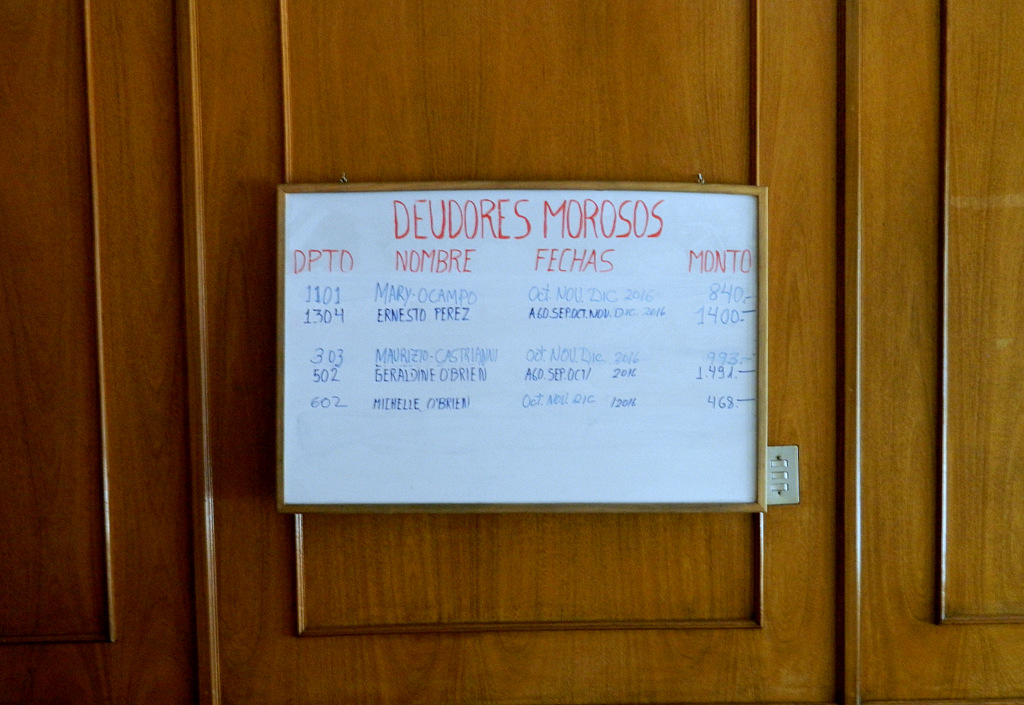 DEUDORES MOROSOS
DPTO NOMBRE FECHAS MONTO
1101 MARY-OCAMPO Oct. NOV. DIC 2016 840.-
1304 ERNESTO PEREZ AGO.SEP.OCT.NOV. DIC. 2016 1400.-
303 MAURIZIO-CASTRIANNI Oct NOV. DIC. 2016 993.-
502 GERALDINE O'BRIEN AGO.SEP.OCT/ 2016 1.491.-
602 MICHELLE O'BRIEN Oct. NOV. DIC /2016 468.-